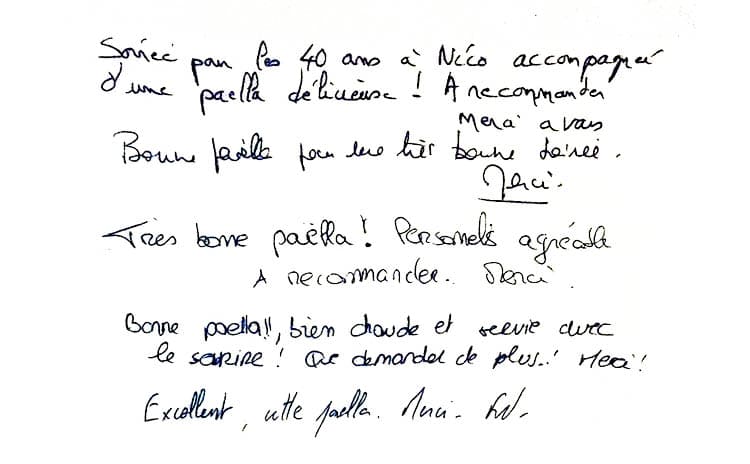 Soirée pour les 40 ans à Nico accompagnée
d'une paella délicieuse ! A recommander
Merci à vous
Bonne paëlla pour une très bonne soirée.
Merci.
Très bonne paëlla ! Personnels agréable
A recommander. Merci.
Bonne paella!!, bien chaude et servie avec
le sourire ! Que demander de plus..! Merci!
Excellent, cette paella. Merci.